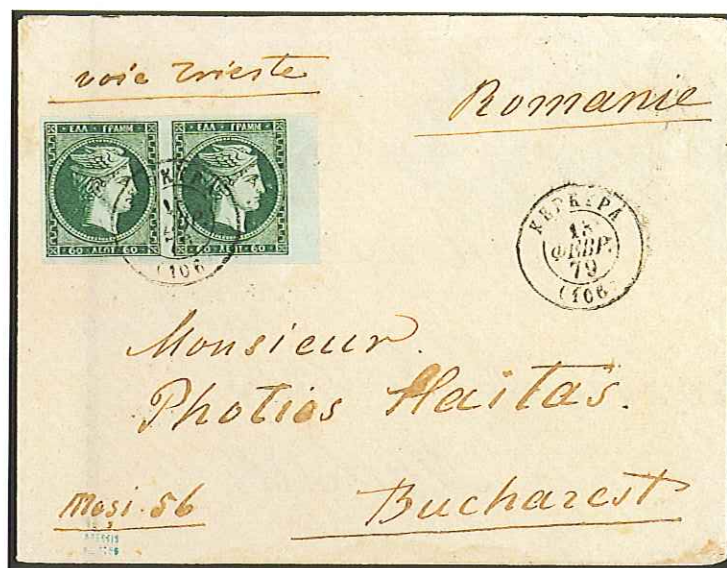 voie Trieste
Romanie
ΕΛΛ ΓΡΑΜΜ ΕΛΛ ΓΡΑΜΜ
60 ΛΕΠΤ 60 60 ΛΕΠ 60
(106
ΚΕΡΚΥΡΑ
18
ΦΕΒΡ.
79
(106
Monsieur.
Photios Haitas.
Moşi. 56
Bucharest